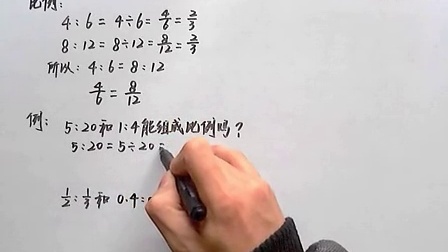 比例:
4:6=4÷6=4/6=2/3
8:12=8÷12=8/12=2/3
所以: 4:6=8:12
4/6=8/12
例: 5:20和1:4能组成比例吗?
5:20=5÷20=
1/2:1/3和0.4: